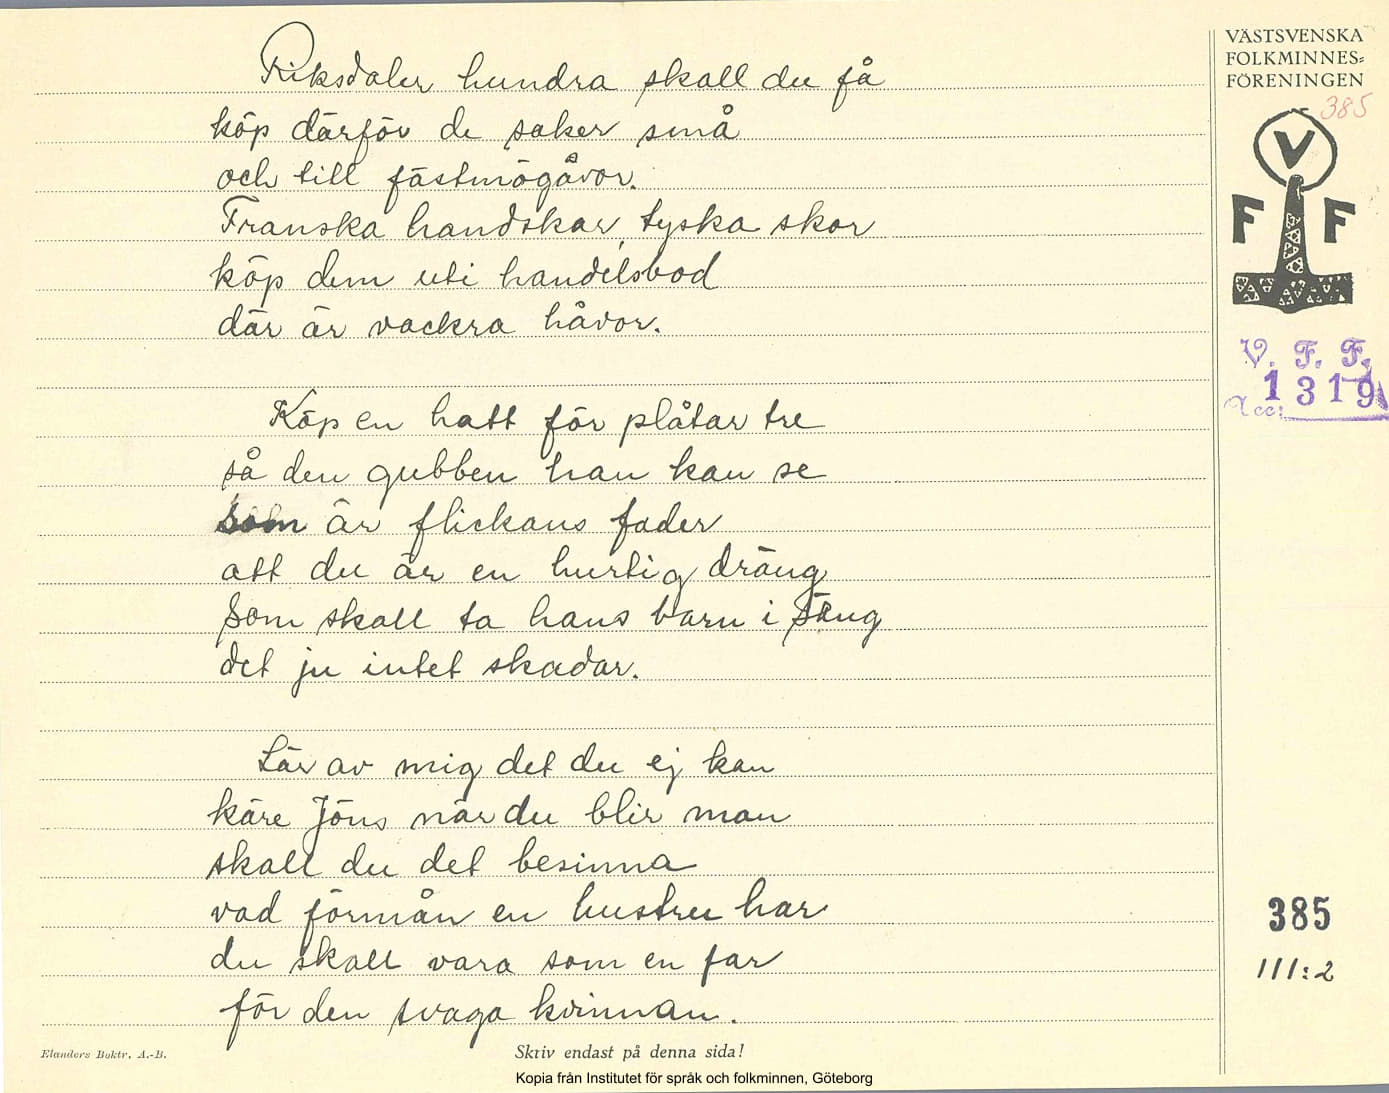 Riksdaler hundra skall du få
köp därför de saker små
och till fästmögåvor.
Franska handskar, tyska skor
köp dem uti handelsbod
där är vackra håvor.
Köp en hatt för plåtar tre
så den gubben han kan se
som är flickans fader
att du är en hurtig dräng
som skall ta hans barn i säng
det ju intet skadar.
Lär av mig det du ej kan
käre Jöns när du blir man
skall du det besinna
vad förmån en hustru har
du skall vara som en far
för den svaga kvinnan.
VÄSTSVENSKA
FOLKMINNES=
FÖRENINGEN
385
V
F F
V. F. F.
Acc: 1319
385
111:2
Elanders Boktr. A.-B.
Skriv endast på denna sida!
Kopia från Institutet för språk och folkminnen, Göteborg